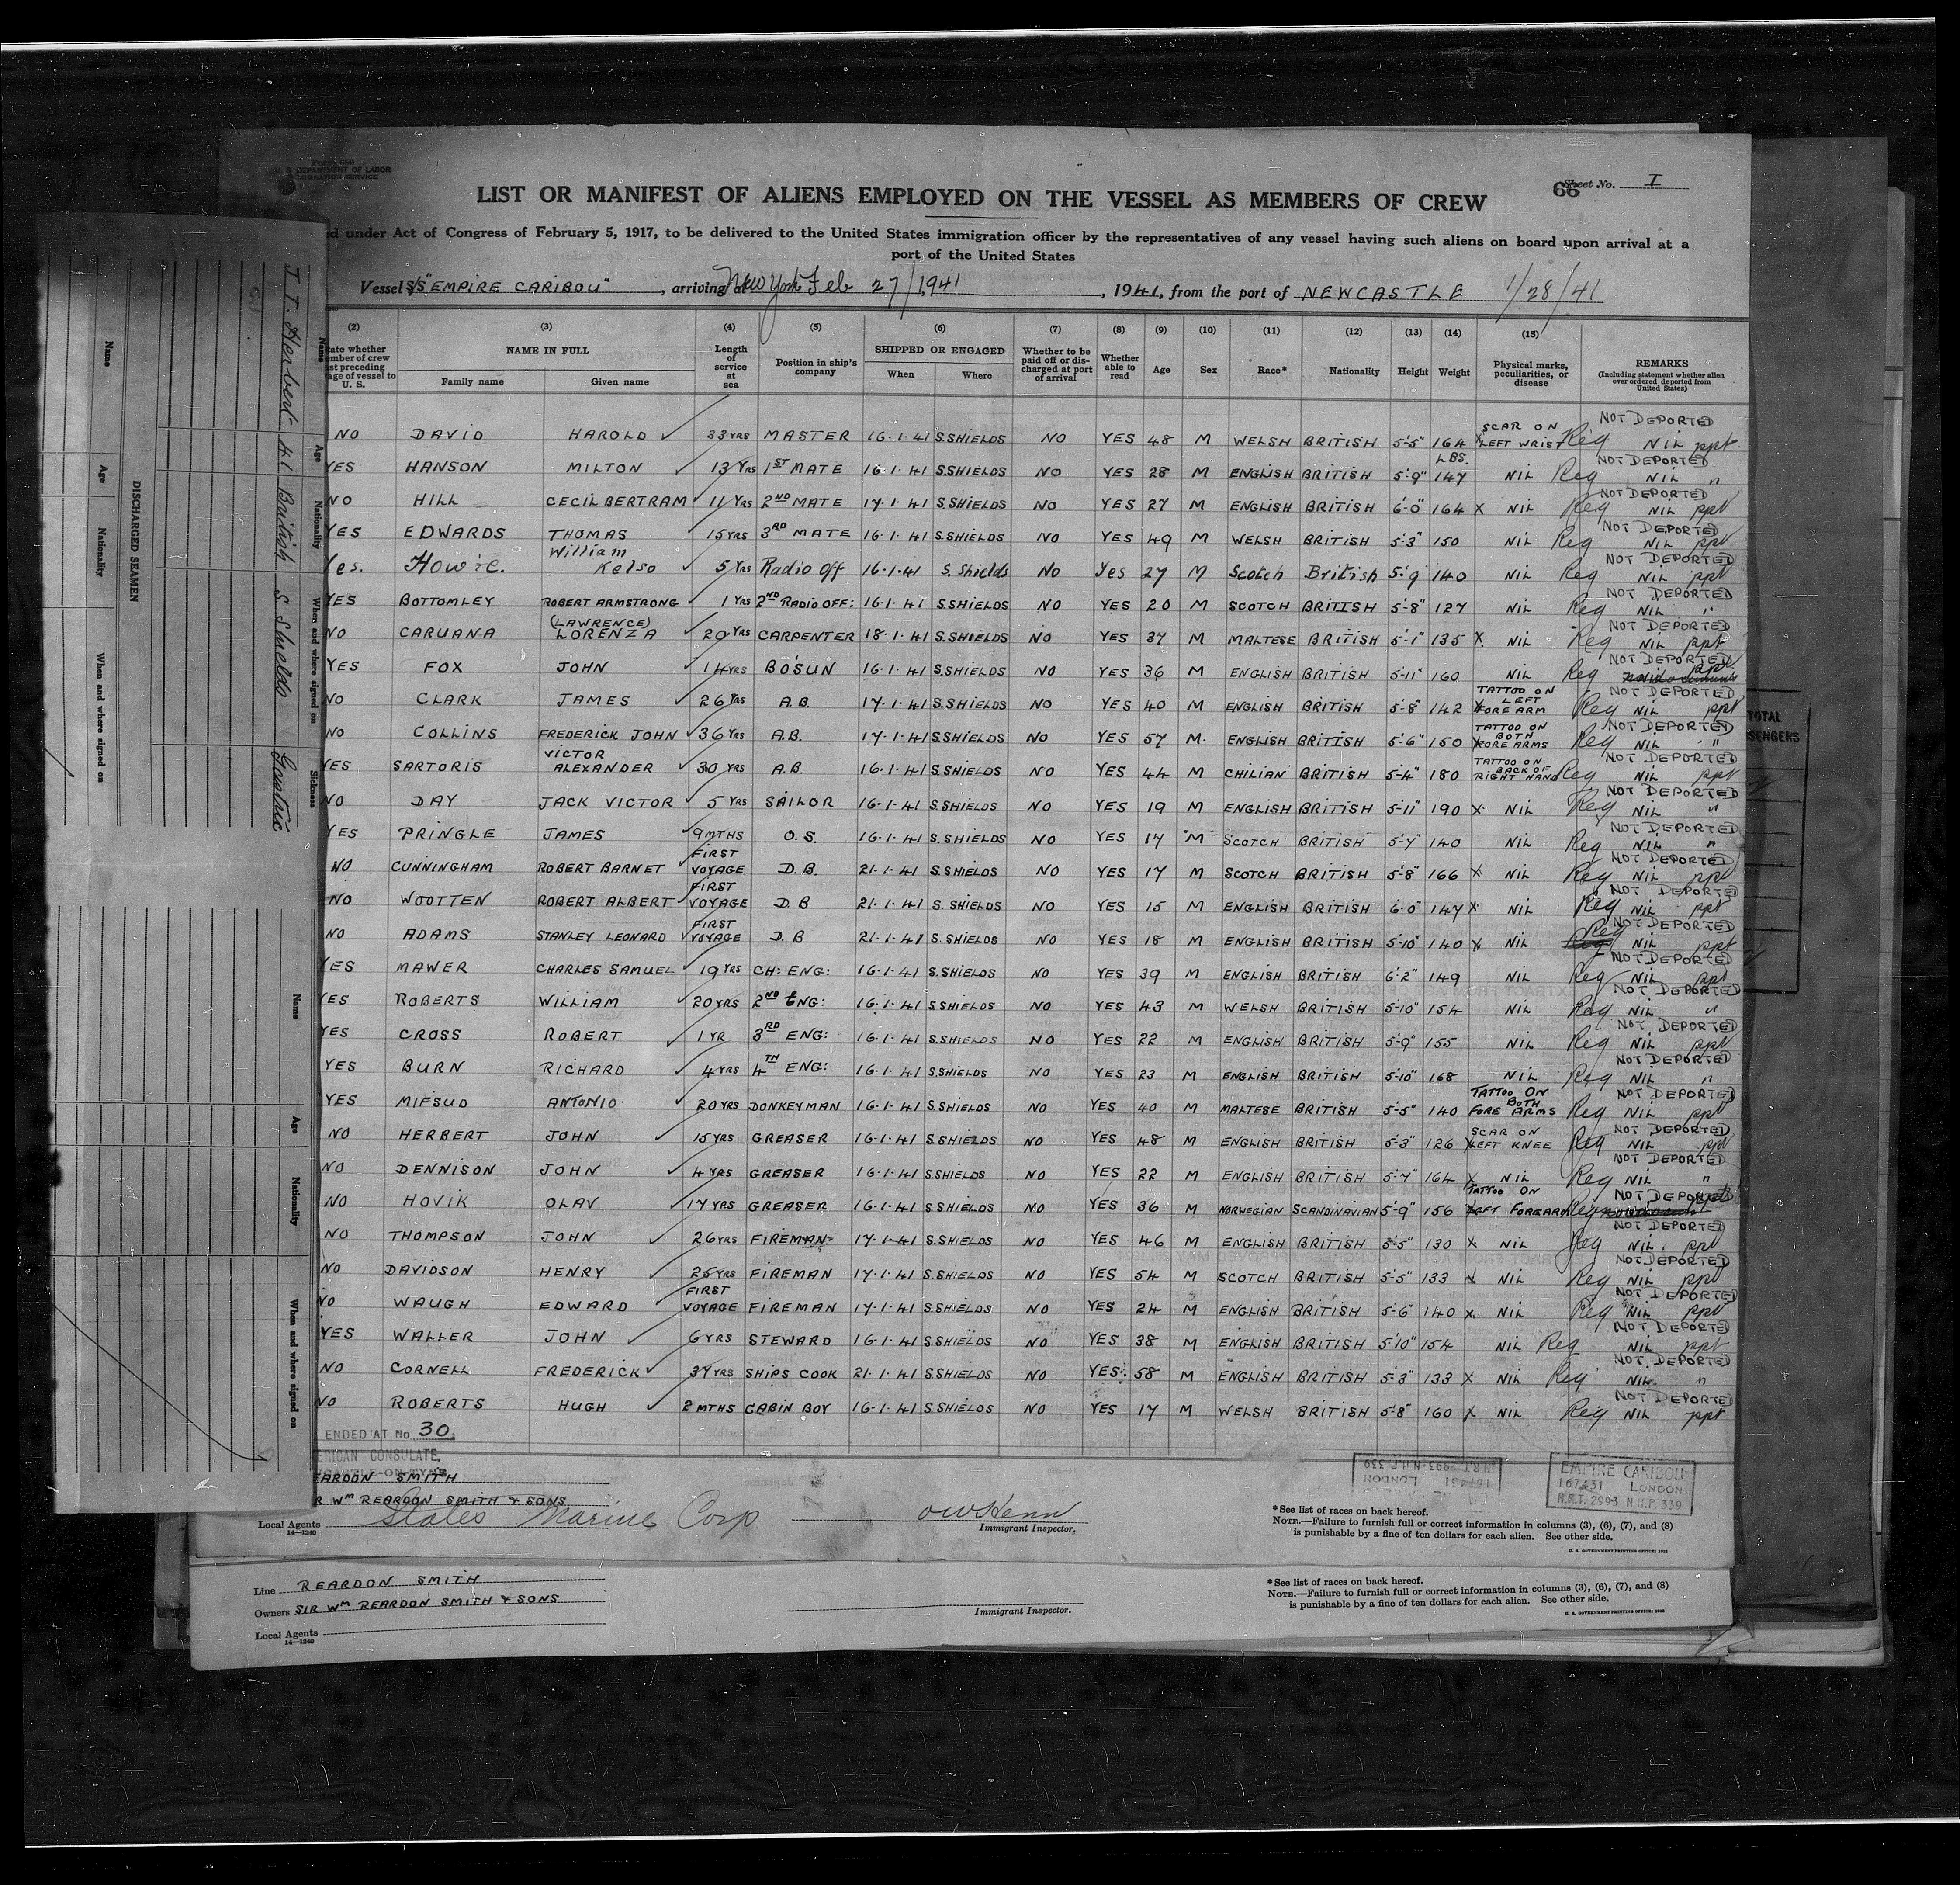 Form 680
U. S. DEPARTMENT OF LABOR
IMMIGRATION SERVICE
66 Sheet No. I
LIST OR MANIFEST OF ALIENS EMPLOYED ON THE VESSEL AS MEMBERS OF CREW
under Act of Congress of February 5, 1917, to be delivered to the United States immigration officer by the representatives of any vessel having such aliens on board upon arrival at a
port of the United States
Vessel S/S "EMPIRE CARIBOU", arriving at New York Feb 27/1941, 1941, from the port of NEWCASTLE 1/28/41
(2) (3) (4) (5) (6) (7) (8) (9) (10) (11) (12) (13) (14) (15)
NAME IN FULL Length of service at sea Position in ship's company SHIPPED OR ENGAGED Whether to be paid off or discharged at port of arrival Whether able to read Age Sex Race* Nationality Height Weight Physical marks, peculiarities, or disease REMARKS (Including statement whether alien ever ordered deported from United States)
Family name Given name When Where
NO DAVID HAROLD 33 YRS MASTER 16.1.41 S.SHIELDS NO YES 48 M WELSH BRITISH 5'-5" 164 LBS. SCAR ON LEFT WRIST Reg NOT DEPORTED NIL ppt
YES HANSON MILTON 13 YRS 1ST MATE 16.1.41 S.SHIELDS NO YES 28 M ENGLISH BRITISH 5'-9" 147 NIL Reg NOT DEPORTED NIL "
NO HILL CECIL BERTRAM 11 YRS 2ND MATE 17.1.41 S.SHIELDS NO YES 27 M ENGLISH BRITISH 6'-0" 164 X NIL Reg NOT DEPORTED NIL ppt
YES EDWARDS THOMAS 15 YRS 3RD MATE 16.1.41 S.SHIELDS NO YES 49 M WELSH BRITISH 5'-3" 150 NIL Reg NOT DEPORTED NIL ppt
Yes. Howie. William Kelso 5 Yrs Radio Off 16.1.41 S. Shields No Yes 27 M Scotch British 5'-9" 140 NIL Reg NOT DEPORTED NIL ppt
YES BOTTOMLEY ROBERT ARMSTRONG 1 YRS 2ND RADIO OFF: 16.1.41 S.SHIELDS NO YES 20 M SCOTCH BRITISH 5'-8" 127 NIL Reg NOT DEPORTED NIL "
NO CARUANA (LAWRENCE) LORENZA 20 YRS CARPENTER 18.1.41 S.SHIELDS NO YES 37 M MALTESE BRITISH 5'-1" 135 X NIL Reg NOT DEPORTED NIL ppt
YES FOX JOHN 14 YRS BOSUN 16.1.41 S.SHIELDS NO YES 36 M ENGLISH BRITISH 5'-11" 160 NIL Reg NOT DEPORTED ppt
NO CLARK JAMES 26 YRS A.B. 17.1.41 S.SHIELDS NO YES 40 M ENGLISH BRITISH 5'-8" 142 X TATTOO ON LEFT FORE ARM Reg NOT DEPORTED NIL ppt
NO COLLINS FREDERICK JOHN 36 YRS A.B. 17.1.41 S.SHIELDS NO YES 57 M. ENGLISH BRITISH 5'-6" 150 X TATTOO ON BOTH FORE ARMS Reg NOT DEPORTED NIL "
YES SARTORIS VICTOR ALEXANDER 30 YRS A.B. 16.1.41 S.SHIELDS NO YES 44 M CHILIAN BRITISH 5'-4" 180 TATTOO ON BACK OF RIGHT HAND Reg NOT DEPORTED NIL ppt
NO DAY JACK VICTOR 5 YRS SAILOR 16.1.41 S.SHIELDS NO YES 19 M ENGLISH BRITISH 5'-11" 190 X NIL Reg NOT DEPORTED NIL "
YES PRINGLE JAMES 9 MTHS O.S. 16.1.41 S.SHIELDS NO YES 17 M SCOTCH BRITISH 5'-7" 140 NIL Reg NOT DEPORTED NIL "
NO CUNNINGHAM ROBERT BARNET FIRST VOYAGE D.B. 21.1.41 S.SHIELDS NO YES 17 M SCOTCH BRITISH 5'-8" 166 X NIL Reg NOT DEPORTED NIL ppt
NO WOOTTEN ROBERT ALBERT FIRST VOYAGE D.B 21.1.41 S. SHIELDS NO YES 15 M ENGLISH BRITISH 6'-0" 147 X NIL Reg NOT DEPORTED NIL ppt
NO ADAMS STANLEY LEONARD FIRST VOYAGE D.B 21.1.41 S. SHIELDS NO YES 18 M ENGLISH BRITISH 5'-10" 140 X NIL Reg NOT DEPORTED NIL ppt
YES MAWER CHARLES SAMUEL 19 YRS CH: ENG: 16.1.41 S.SHIELDS NO YES 39 M ENGLISH BRITISH 6'-2" 149 NIL Reg NOT DEPORTED NIL ppt
YES ROBERTS WILLIAM 20 YRS 2ND ENG: 16.1.41 S.SHIELDS NO YES 43 M WELSH BRITISH 5'-10" 154 NIL Reg NOT DEPORTED NIL "
YES CROSS ROBERT 1 YR 3RD ENG: 16.1.41 S.SHIELDS NO YES 22 M ENGLISH BRITISH 5'-9" 155 NIL Reg NOT DEPORTED NIL ppt
YES BURN RICHARD 4 YRS 4TH ENG: 16.1.41 S.SHIELDS NO YES 23 M ENGLISH BRITISH 5'-10" 168 NIL Reg NOT DEPORTED NIL "
YES MIFSUD ANTONIO 20 YRS DONKEYMAN 16.1.41 S.SHIELDS NO YES 40 M MALTESE BRITISH 5'-5" 140 TATTOO ON BOTH FORE ARMS Reg NOT DEPORTED NIL ppt
NO HERBERT JOHN 15 YRS GREASER 16.1.41 S.SHIELDS NO YES 48 M ENGLISH BRITISH 5'-3" 126 X SCAR ON LEFT KNEE Reg NOT DEPORTED NIL ppt
NO DENNISON JOHN 4 YRS GREASER 16.1.41 S.SHIELDS NO YES 22 M ENGLISH BRITISH 5'-7" 164 X NIL Reg NOT DEPORTED NIL "
NO HOVIK OLAV 17 YRS GREASER 16.1.41 S.SHIELDS NO YES 36 M NORWEGIAN SCANDINAVIAN 5'-9" 156 X TATTOO ON LEFT FOREARM Reg NOT DEPORTED ppt
NO THOMPSON JOHN 26 YRS FIREMAN 17.1.41 S.SHIELDS NO YES 46 M ENGLISH BRITISH 5'-5" 130 X NIL Reg NOT DEPORTED NIL ppt
NO DAVIDSON HENRY 25 YRS FIREMAN 17.1.41 S.SHIELDS NO YES 54 M SCOTCH BRITISH 5'-5" 133 X NIL Reg NOT DEPORTED NIL ppt
NO WAUGH EDWARD FIRST VOYAGE FIREMAN 17.1.41 S.SHIELDS NO YES 24 M ENGLISH BRITISH 5'-6" 140 X NIL Reg NOT DEPORTED NIL ppt
YES WALLER JOHN 6 YRS STEWARD 16.1.41 S.SHIELDS NO YES 38 M ENGLISH BRITISH 5'-10" 154 NIL Reg NOT DEPORTED NIL ppt
NO CORNELL FREDERICK 37 YRS SHIPS COOK 21.1.41 S.SHIELDS NO YES 58 M ENGLISH BRITISH 5'-3" 133 X NIL Reg NOT DEPORTED NIL "
NO ROBERTS HUGH 2 MTHS CABIN BOY 16.1.41 S.SHIELDS NO YES 17 M WELSH BRITISH 5'-8" 160 X NIL Reg NOT DEPORTED NIL ppt
ENDED AT No. 30
CONSULATE,
REARDON SMITH
WM REARDON SMITH & SONS
Local Agents States Marine Corp
14-1240
Immigrant Inspector.
EMPIRE CARIBOU
167431 LONDON
N.R.T. 2993 N.H.P. 339
*See list of races on back hereof.
NOTE.—Failure to furnish full or correct information in columns (3), (6), (7), and (8)
is punishable by a fine of ten dollars for each alien. See other side.
U. S. GOVERNMENT PRINTING OFFICE:
Line REARDON SMITH
Owners SIR WM REARDON SMITH & SONS
Local Agents
14-1240
Immigrant Inspector.
*See list of races on back hereof.
NOTE.—Failure to furnish full or correct information in columns (3), (6), (7), and (8)
is punishable by a fine of ten dollars for each alien. See other side.
U. S. GOVERNMENT PRINTING OFFICE:
DISCHARGED SEAMEN
Name Age Nationality When and where signed on Sickness
Herbert 41 British S Shields
Name Age Nationality When and where signed on
Name Age Nationality When and where signed on
TOTAL